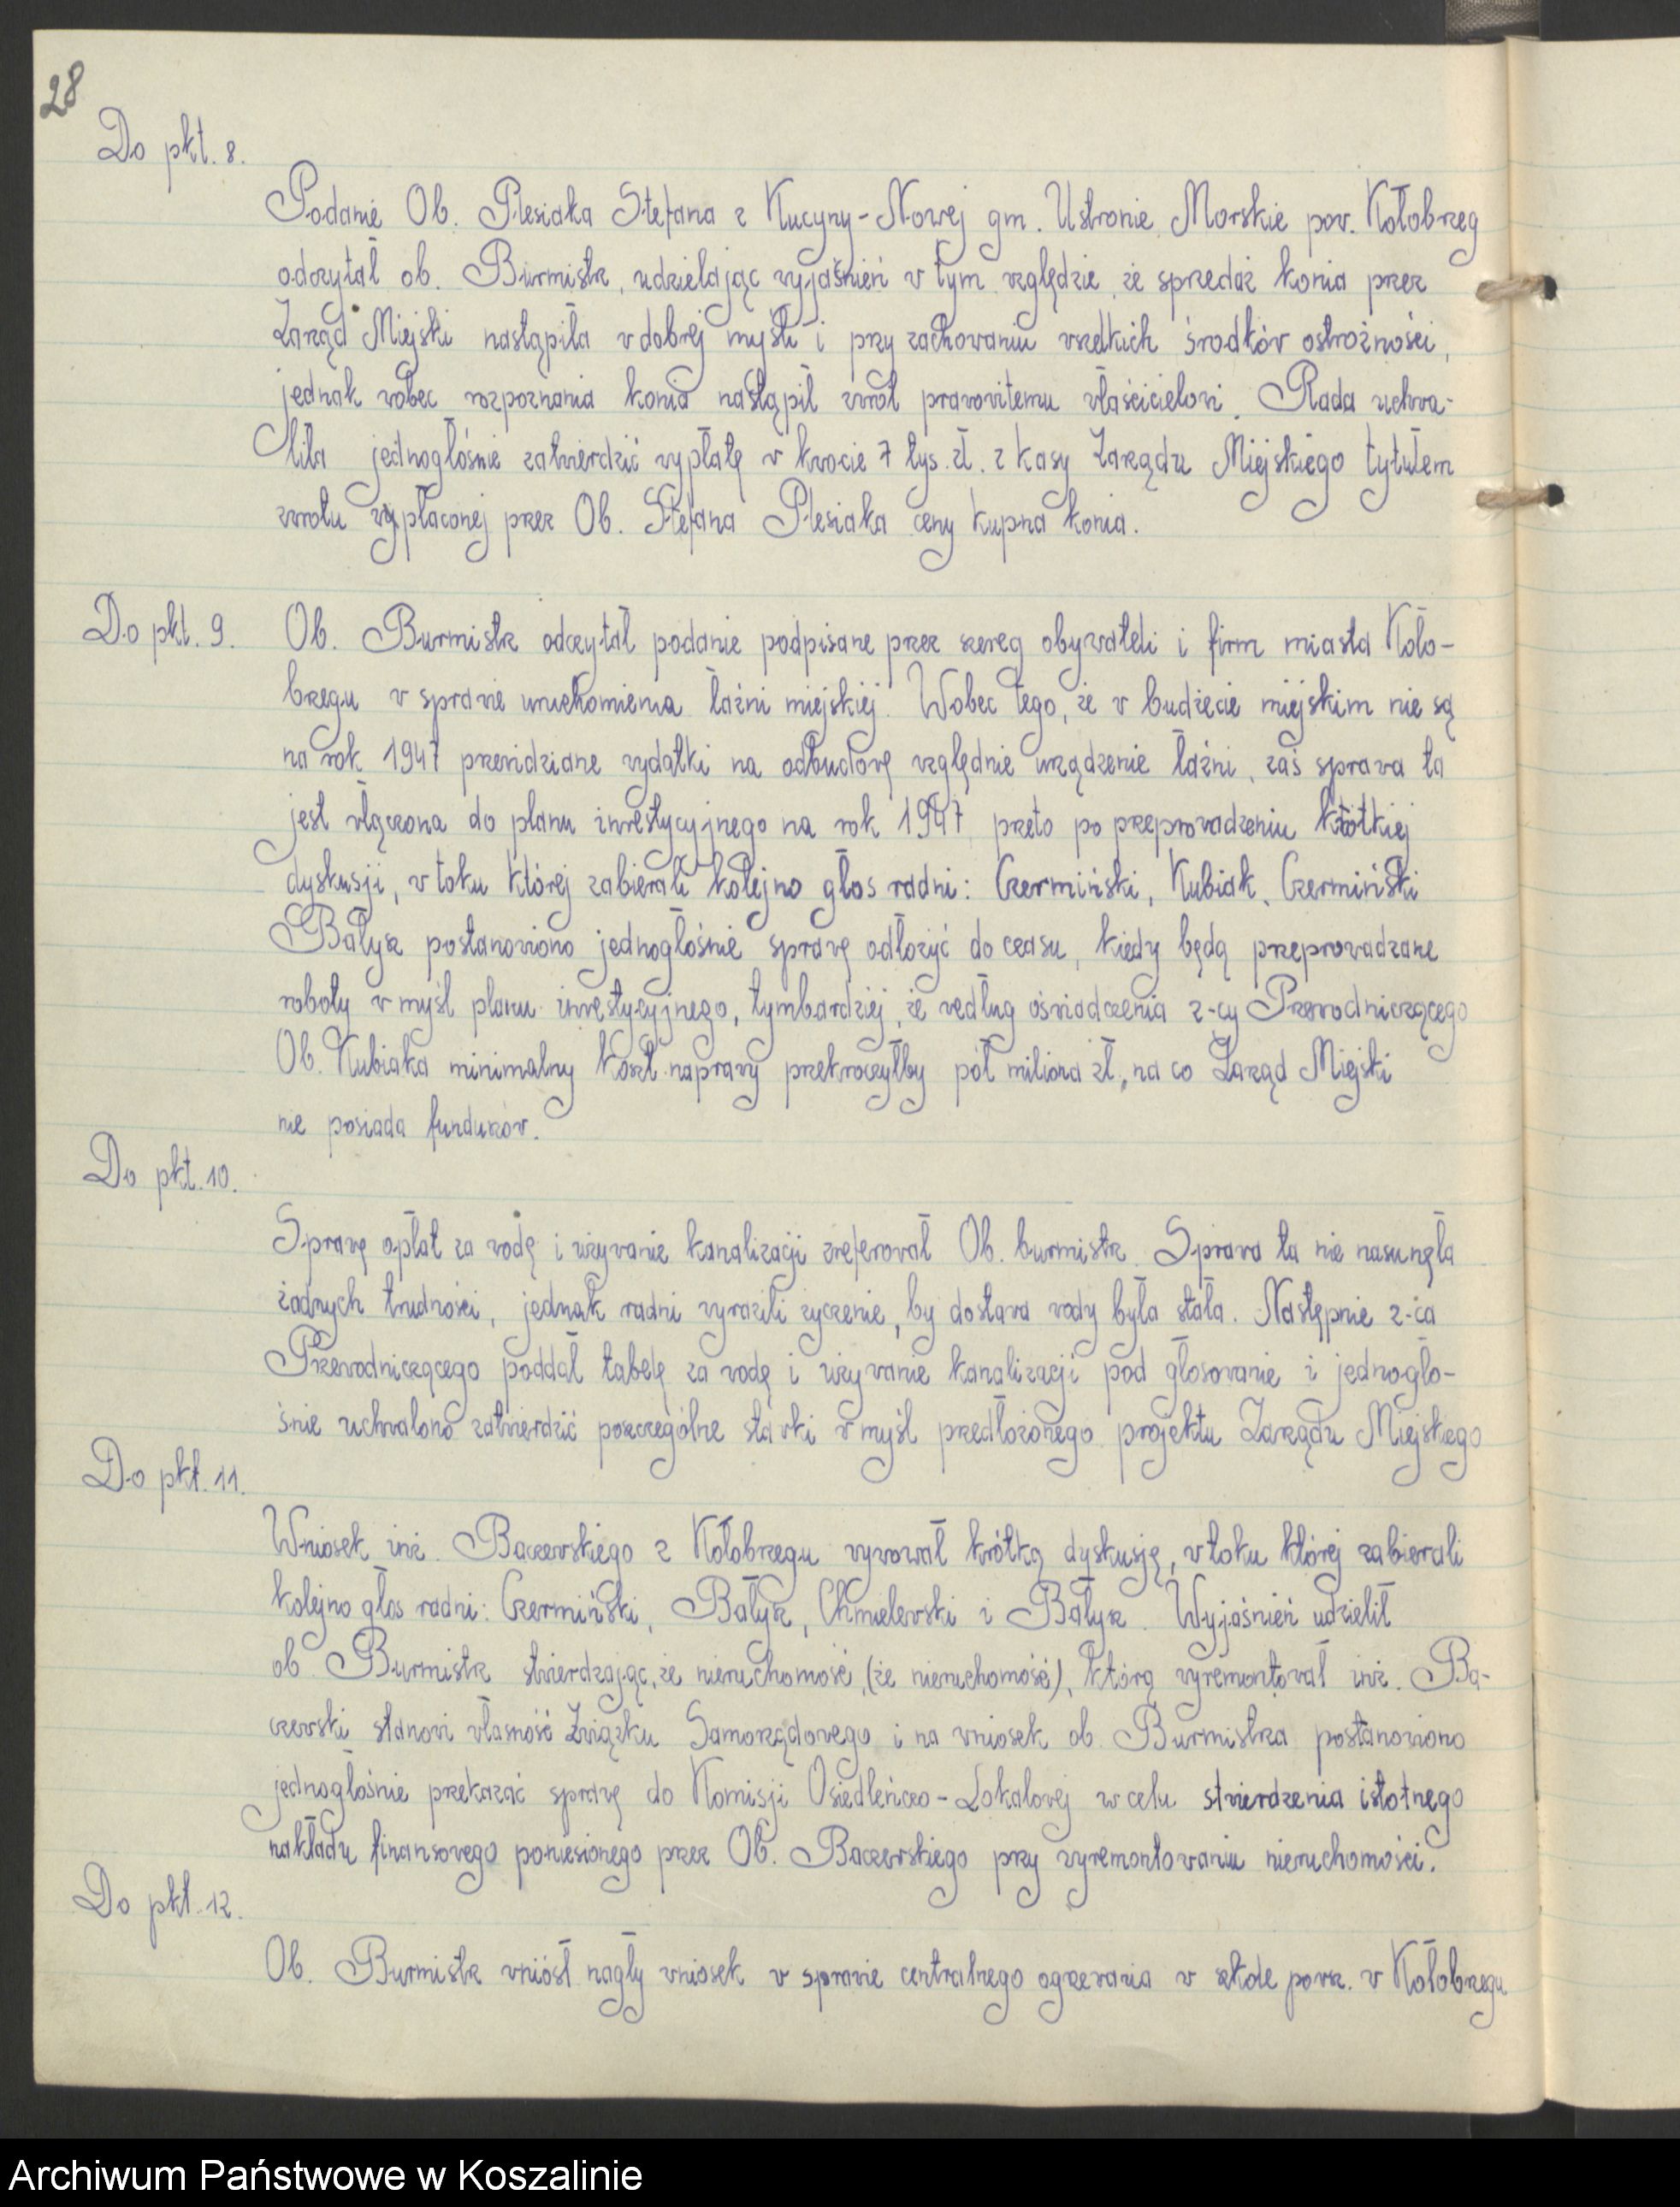 28
Do pkt. 8.
Podanie Ob. Plesiaka Stefana z Kucyny-Nowej gm. Ustronie Morskie pow. Kołobrzeg
odczytał ob. Burmistrz, udzielając wyjaśnień w tym względzie, że sprzedaż konia przez
Zarząd Miejski nastąpiła w dobrej myśli i przy zachowaniu wszelkich środków ostrożności,
jednak wobec rozpoznania konia nastąpił zwrot prawowitemu właścicielowi. Rada uchwa-
liła jednogłośnie zatwierdzić wypłatę w kwocie 7 tys. zł. z kasy Zarządu Miejskiego tytułem
zwrotu wypłaconej przez Ob. Stefana Plesiaka ceny kupna konia.
Do pkt. 9.
Ob. Burmistrz odczytał podanie podpisane przez szereg obywateli i firm miasta Koło-
brzegu w sprawie uruchomienia łaźni miejskiej. Wobec tego, że w budżecie miejskim nie są
na rok 1947 przewidziane wydatki na odbudowę względnie urządzenie łaźni, zaś sprawa ta
jest włączona do planu inwestycyjnego na rok 1947 przeto po przeprowadzeniu krótkiej
dyskusji, w toku której zabierali kolejno głos radni: Czermiński, Kubiak, Czermiński
Bałysz postanowiono jednogłośnie sprawę odłożyć do czasu, kiedy będą przeprowadzane
roboty w myśl planu inwestycyjnego, tymbardziej, że według oświadczenia z-cy Przewodniczącego
Ob. Kubiaka minimalny koszt naprawy przekroczyłby pół miliona zł, na co Zarząd Miejski
nie posiada funduszów.
Do pkt. 10.
Sprawę opłat za wodę i używanie kanalizacji zreferował Ob. burmistrz. Sprawa ta nie nasunęła
żadnych trudności, jednak radni wyrazili życzenie, by dostawa wody była stała. Następnie z-ca
Przewodniczącego poddał tabelę za wodę i używanie kanalizacji pod głosowanie i jednogło-
śnie uchwalono zatwierdzić poszczególne stawki w myśl przedłożonego projektu Zarządu Miejskiego
Do pkt. 11.
Wniosek inż. Baczewskiego z Kołobrzegu wywołał krótką dyskusję, w toku której zabierali
kolejno głos radni: Czermiński, Bałysz, Chmielewski i Bałysz. Wyjaśnień udzielił
ob. Burmistrz stwierdzając, że nieruchomość, (że nieruchomość), którą wyremontował inż. Ba-
czewski stanowi własność Związku Samorządowego i na wniosek ob. Burmistrza postanowiono
jednogłośnie przekazać sprawę do Komisji Osiedleńczo-Lokalowej w celu stwierdzenia istotnego
nakładu finansowego poniesionego przez Ob. Baczewskiego przy wyremontowaniu nieruchomości.
Do pkt. 12.
Ob. Burmistrz wniósł nagły wniosek w sprawie centralnego ogrzewania w szkole powsz. w Kołobrzegu
Archiwum Państwowe w Koszalinie